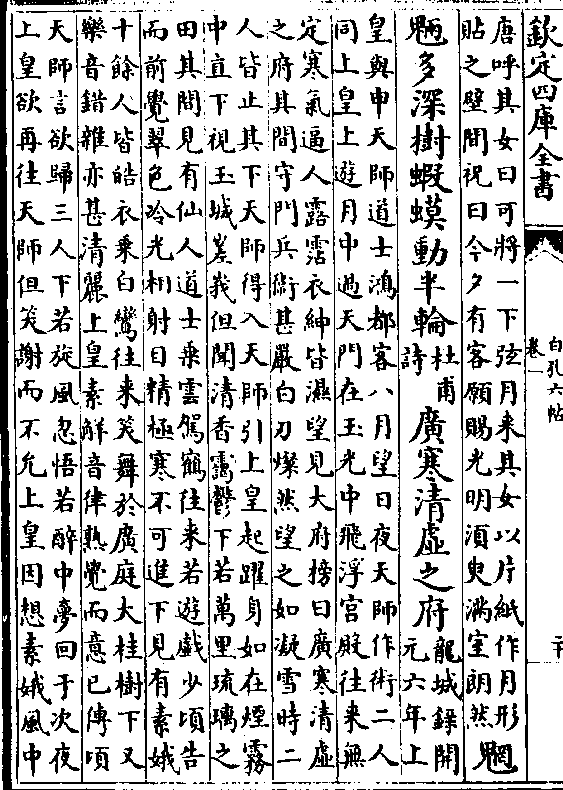 欽定四庫全書
白孔六帖
卷一
唐呼其女曰可將一下弦月来其女以片紙作月形
貼之壁間祝曰今夕有客願賜光明須臾滿室朗然
魍
魎多深樹蝦蟆動半輪 杜甫詩 廣寒清虛之府 龍城錄開元六年上
皇與申天師道士鴻都客八月望日夜天師作術二人
同上皇上遊月中過天門在玉光中飛浮宮殿往来無
定寒氣逼人露霑衣紳皆濕望見大府榜曰廣寒清虛
之府其間守門兵衛甚嚴白刃燦然望之如凝雪時二
人皆止其下天師得入天師引上皇起躍身如在煙霧
中直下視玉城嵳峩但聞清香靄鬱下若萬里琉璃之
田其間見有仙人道士乘雲駕鶴往来若遊戲少頃告
而前覺翠色冷光相射目精極寒不可進下見有素娥
十餘人皆皓衣乘白鸞往来笑舞於廣庭大桂樹下又
樂音錯雜亦甚清麗上皇素解音律熟覽而意已傳頃
天師言欲歸三人下若旋風忽悟若醉中夢回于次夜
上皇欲再往天師但笑謝而不允上皇因想素娥風中